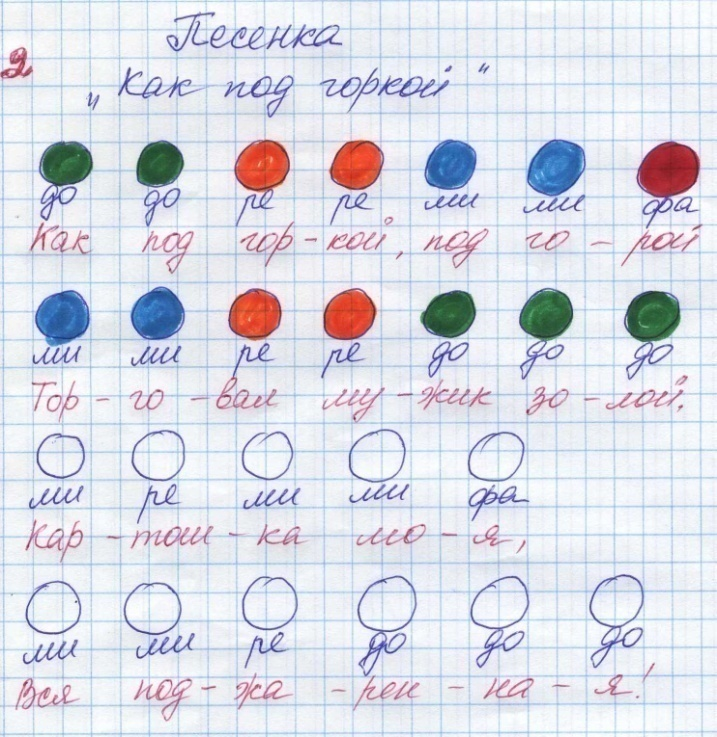 Песенка
2
„Как под горкой"
до до ре ре ми ми фа
Как под гор-кой, под го-рой
ми ми ре ре до до до
Тор-го-вал му-жик зо-лой.
ми ре ми ми фа
Кар-тош-ка мо-я,
ми ми ре до до до
Вся под-жа-рен-на-я!